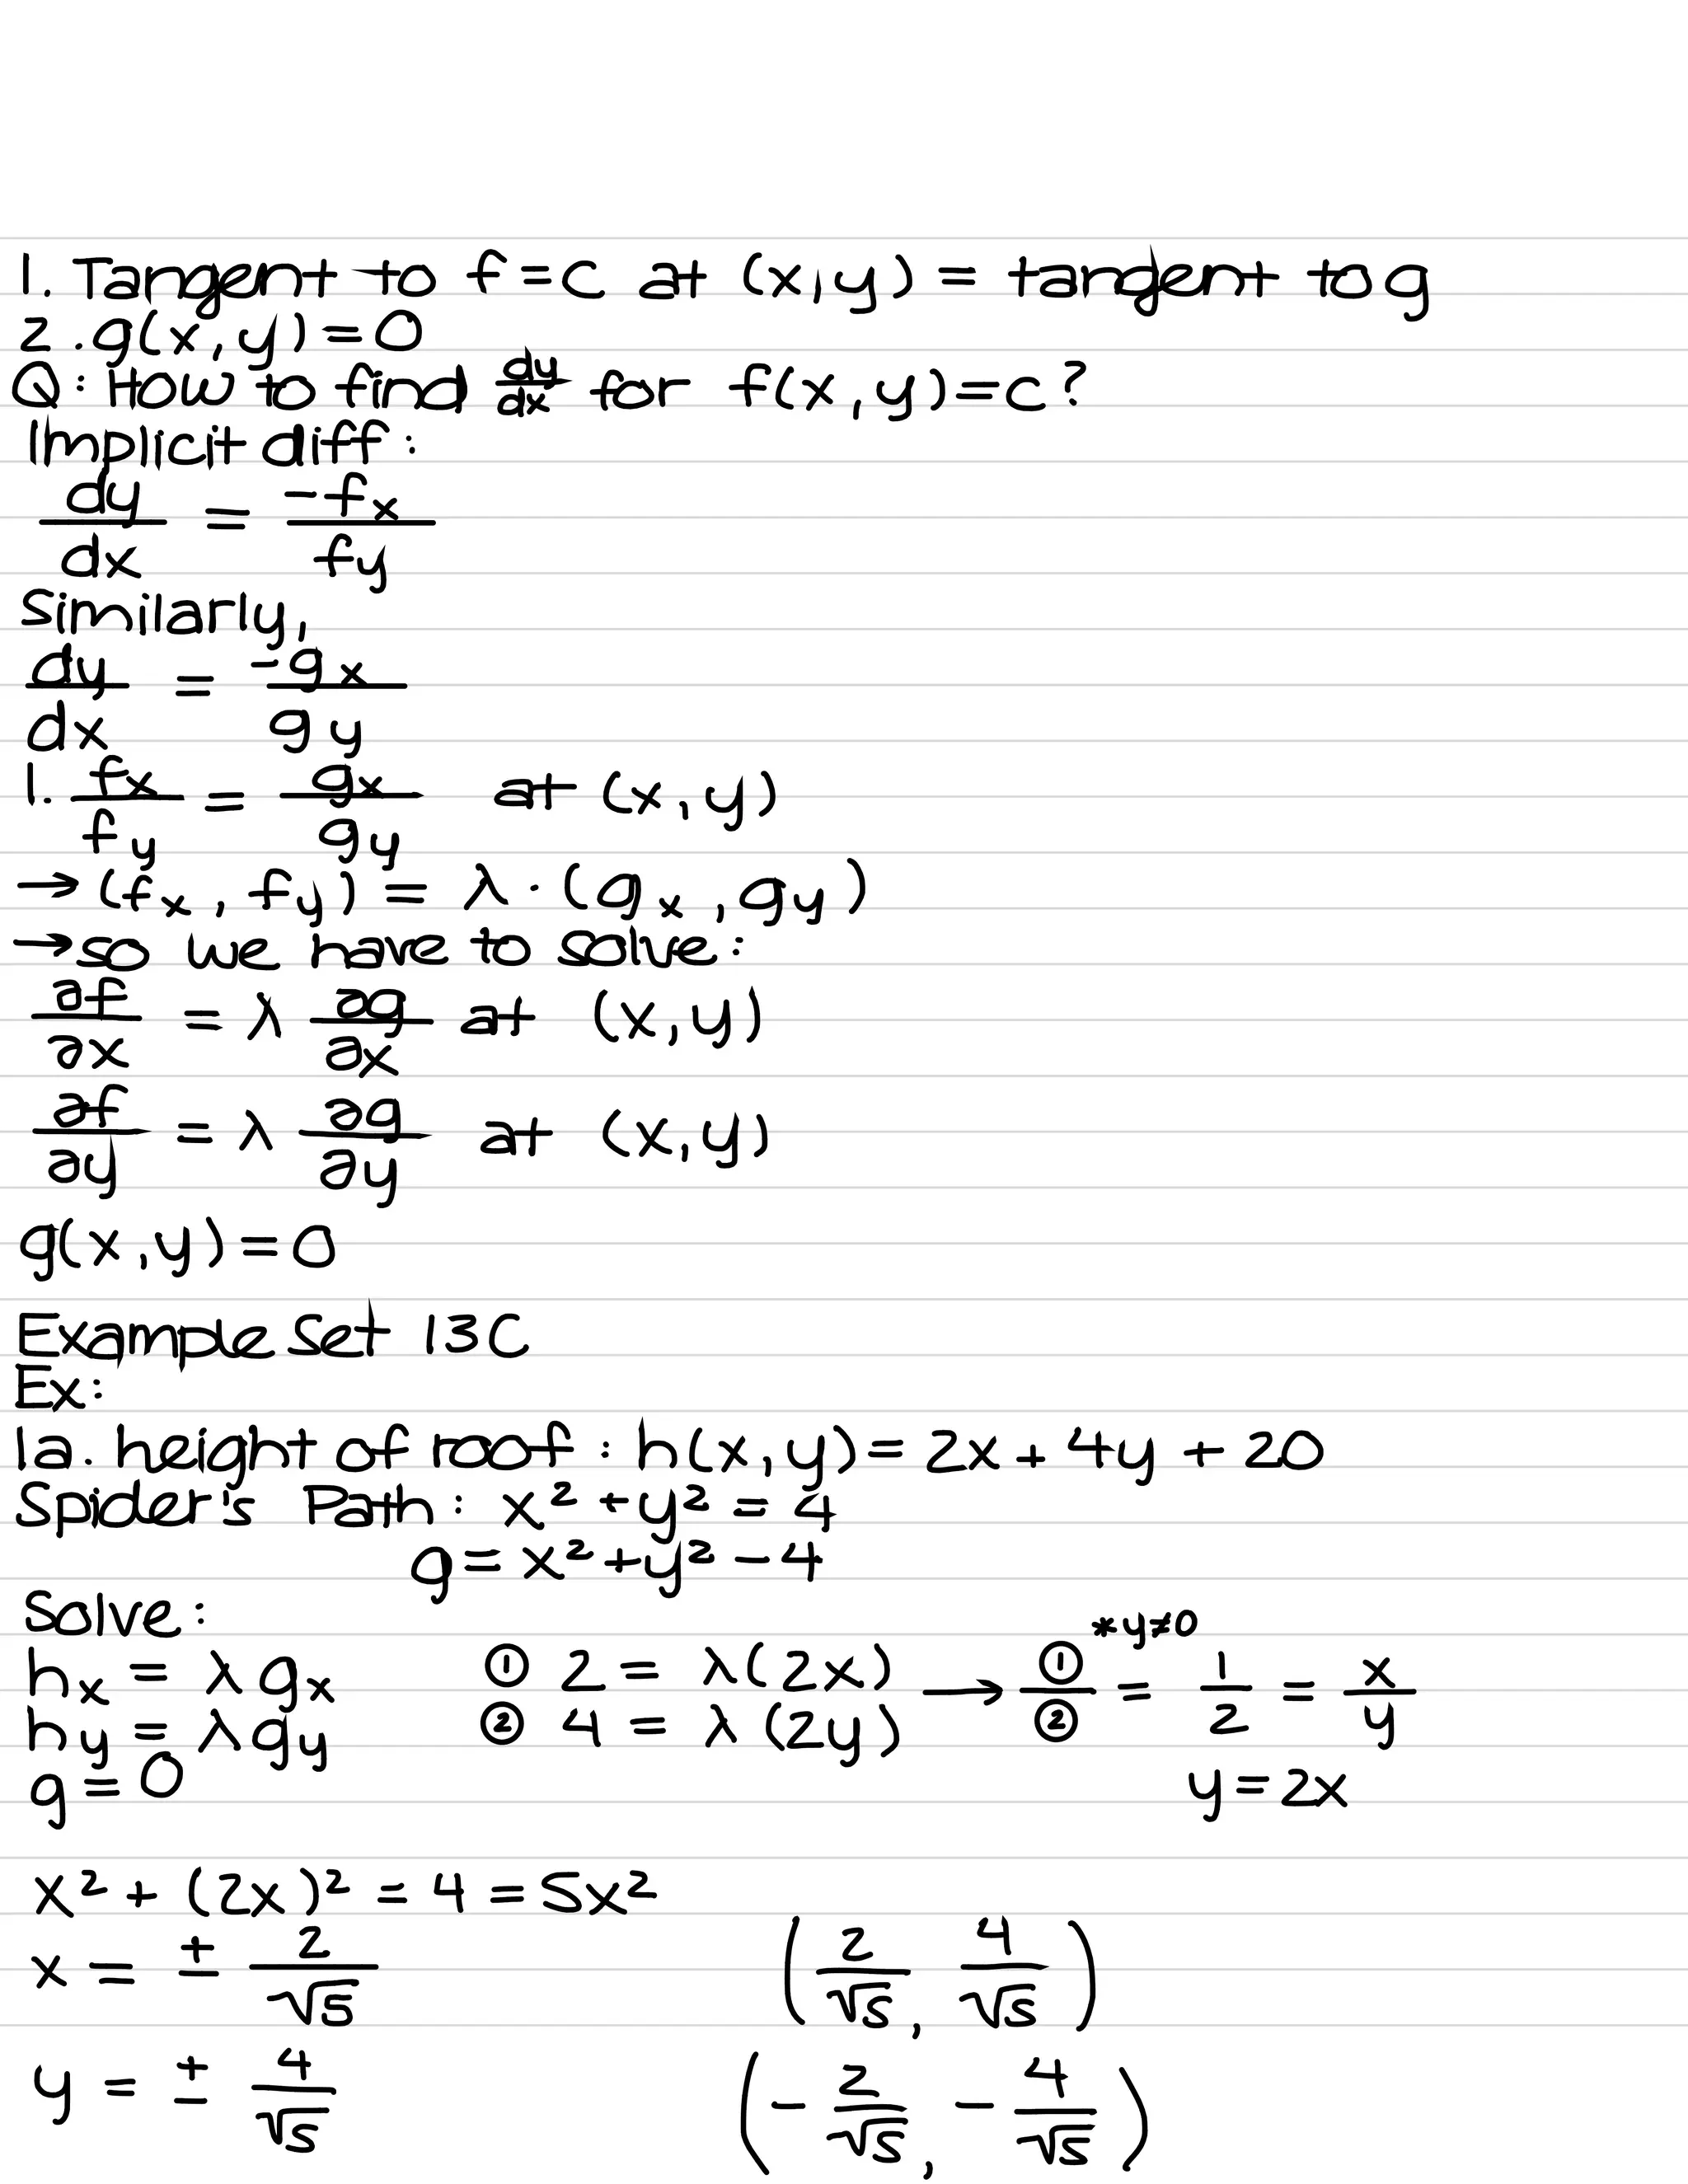 1. Tangent to f=c at (x,y) = tangent to g
2. g(x,y)=0
Q: How to find dy/dx for f(x,y)=c?
Implicit diff:
dy/dx = -fx/fy
Similarly,
dy/dx = -gx/gy
1. fx/fy = gx/gy at (x,y)
→ (fx, fy) = λ · (gx, gy)
→ so we have to solve:
∂f/∂x = λ ∂g/∂x at (x,y)
∂f/∂y = λ ∂g/∂y at (x,y)
g(x,y)=0
Example Set 13C
Ex:
1a. height of roof: h(x,y)= 2x + 4y + 20
Spider's Path: x² + y² = 4
g= x² + y² - 4
Solve:
*y≠0
hx = λgx ① 2 = λ(2x) → ①/② = 1/2 = x/y
hy = λgy ② 4 = λ(2y)
g = 0 y = 2x
x² + (2x)² = 4 = 5x²
x = ± 2/√5 (2/√5, 4/√5)
y = ± 4/√5 (-2/√5, -4/√5)